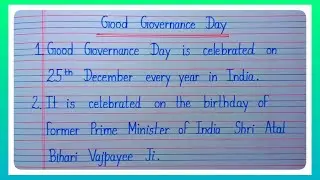 Good Governance Day
1. Good Governance Day is celebrated on
25th December every year in India.
2. It is celebrated on the birthday of
former Prime Minister of India Shri Atal
Bihari Vajpayee Ji.